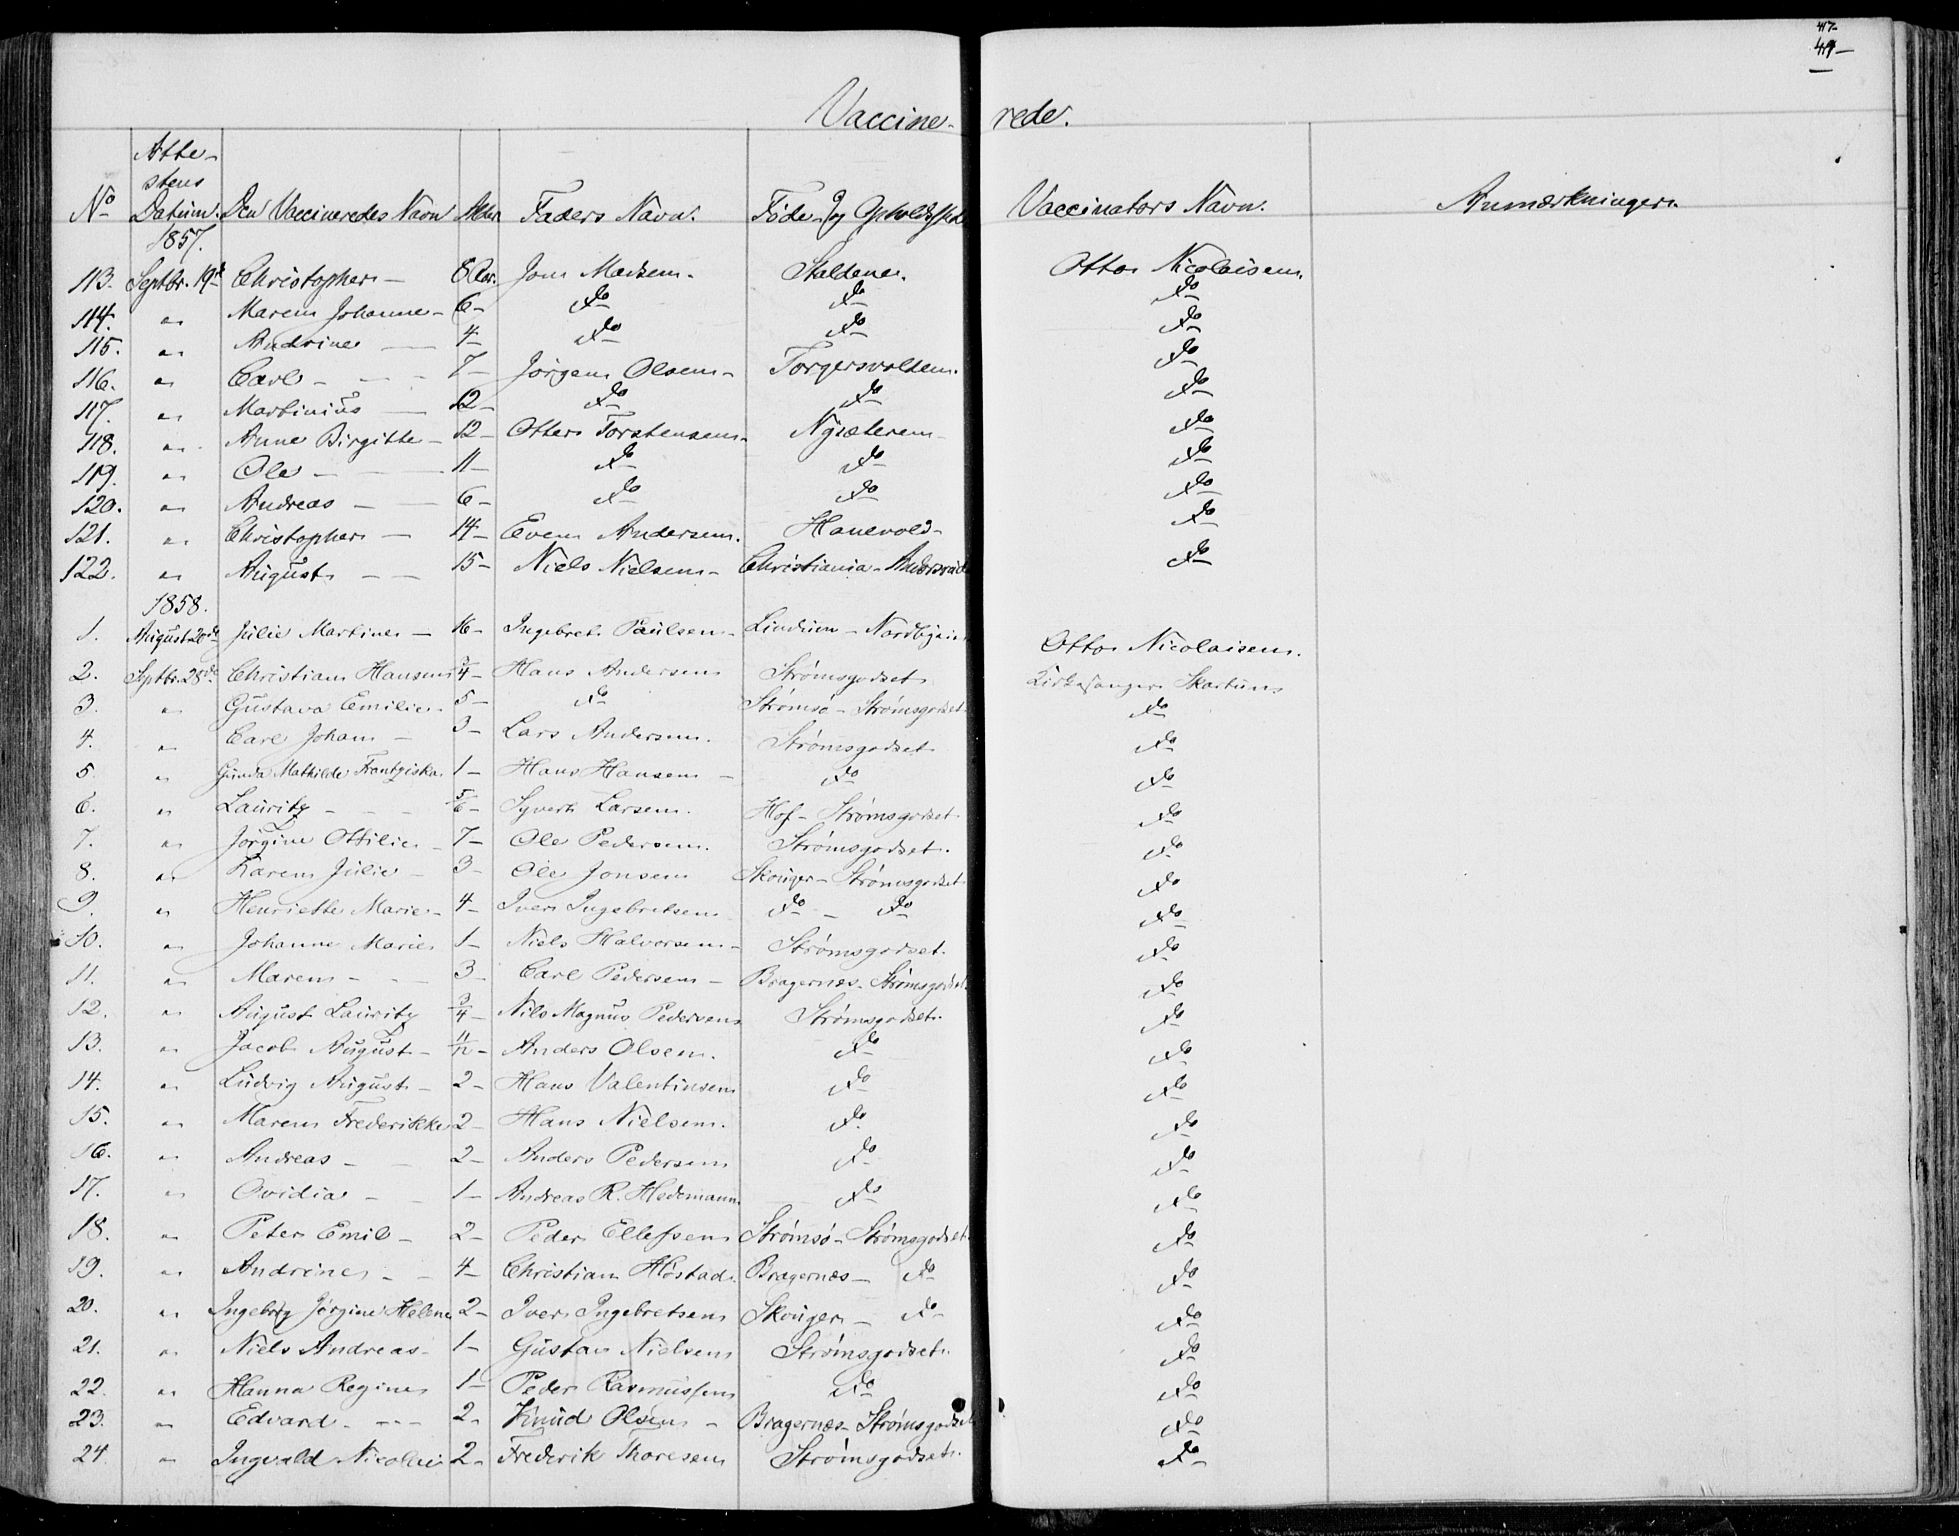 47-
49-
Vaccine- rede.
No Atte-stens Datum. Den Vaccineredes Navn Alder Faders Navn. Føde- og Opholdssted Vaccinators Navn. Anmærkninger.
1857.
113. Septbr. 19de Christopher - 8 Aar. Jon Madsen. Staldene. Otto Nicolaisen.
114. " Maren Johanne - 6 - do do do
115. " Andrine - 4 - do do do
116. " Carl - 7 - Jørgen Olsen - Torgersvolden. do
117. " Martinius - 12 - do do do
118. " Anne Birgitte - 12 - Otter Torstensen - Nysæteren - do
119. " Ole - 11 - do do do
120. " Andreas - 6 - do do do
121. " Christopher - 14 - Even Andersen. Hanevold - do
122. " August - 15 - Niels Nielsen - Christiania - do
1858.
1. August 20de Julie Martine - 16 - Ingebret Paulsen - Lindum - Otto Nicolaisen.
2. Septbr. 28de Christian Hansen 3/4 - Hans Andersen Strømsgodset Kirkesanger Skartum
3. " Gustava Emilie - 5 - do Strømsø - Strømsgodset do
4. " Carl Johan - 3 - Lars Andersen. Strømsgodset do
5. " Gunda Mathilde Frantziska 1 - Hans Hansen - do do
6. " Lauritz - 5/6 - Syvert Larsen. Hof - Strømsgodset do
7. " Jørgine Ottilie - 7 - Ole Pedersen. Strømsgodset. do
8. " Karen Julie - 3 - Ole Jonsen Skouger - Strømsgodset do
9. " Henriette Marie - 4 - Iver Ingebretsen do - do do
10. " Johanne Marie 1 - Niels Halvorsen - Strømsgodset. do
11. " Maren - 3 - Carl Pedersen - Bragernæs - Strømsgodset do
12. " August Lauritz 3/4 - Nils Magnus Pedersen Strømsgodset. do
13. " Jacob August - 11/12 - Anders Olsen. do do
14. " Ludvig August - 2 - Hans Valentinsen do do
15. " Maren Frederikke 2 - Hans Nielsen. do do
16. " Andreas - 2 - Anders Pedersen do do
17. " Ovidia - 1 - Andreas R. Hedemann do do
18. " Peter Emil - 2 - Peder Ellefsen Strømsø - Strømsgodset do
19. " Andrine - 4 - Christian Høstad. Bragernæs - do do
20. " Ingeborg Jørgine Helene 2 - Iver Ingebretsen Skouger - do do
21. " Niels Andreas - 1 - Gustav Nielsen Strømsgodset. do
22. " Hanna Regine 1 - Peder Rasmussen do do
23. " Edvard - 2 - Knud Olsen - Bragernæs - Strømsgodset do
24. " Ingvald Nicolai 2 - Frederik Thoresen Strømsgodset. do